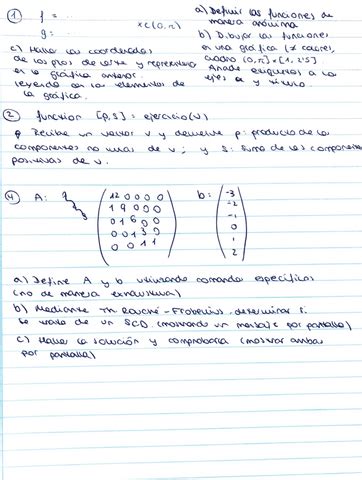 ① f = ...
g: ... x∈(0,π)
a) Definir las funciones de
manera anónima
b) Dibujar las funciones
en una gráfica (x colores,
cuadro [0,π]×[1, 2'5]
Añade etiquetas a los
ejes y título.
c) Hallar las coordenadas
de los ptos de corte y represéntalos
en la gráfica anterior.
leyenda en los elementos de
la gráfica.
② function [p,s] = ejercicio(v)
Recibe un vector v y devuelve p: producto de las
componentes no nulas de v; y s: suma de las componentes
positivas de v.
④ A:
12 0 0 0 0
1 9 0 0 0
0 1 6 0 0
0 0 1 3 0
0 0 1 1
b:
-3
-2
-1
0
1
2
a) Define A y b utilizando comandos específicos
(no de manera exhaustiva)
b) Mediante Th Rouché-Frobenius determinar si
se trata de un SCD (mostrando un mensaje por pantalla)
c) Hallar la solución y comprobarla (mostrar ambas
por pantalla)